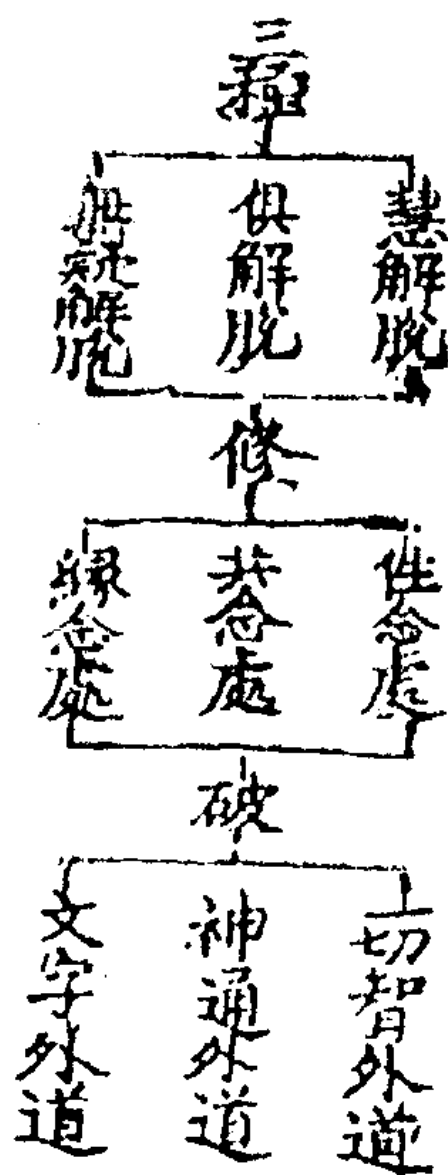 三種
慧解脫
俱解脫
無疑解脫
修
性念處
共念處
緣念處
破
一切智外道
神通外道
文字外道